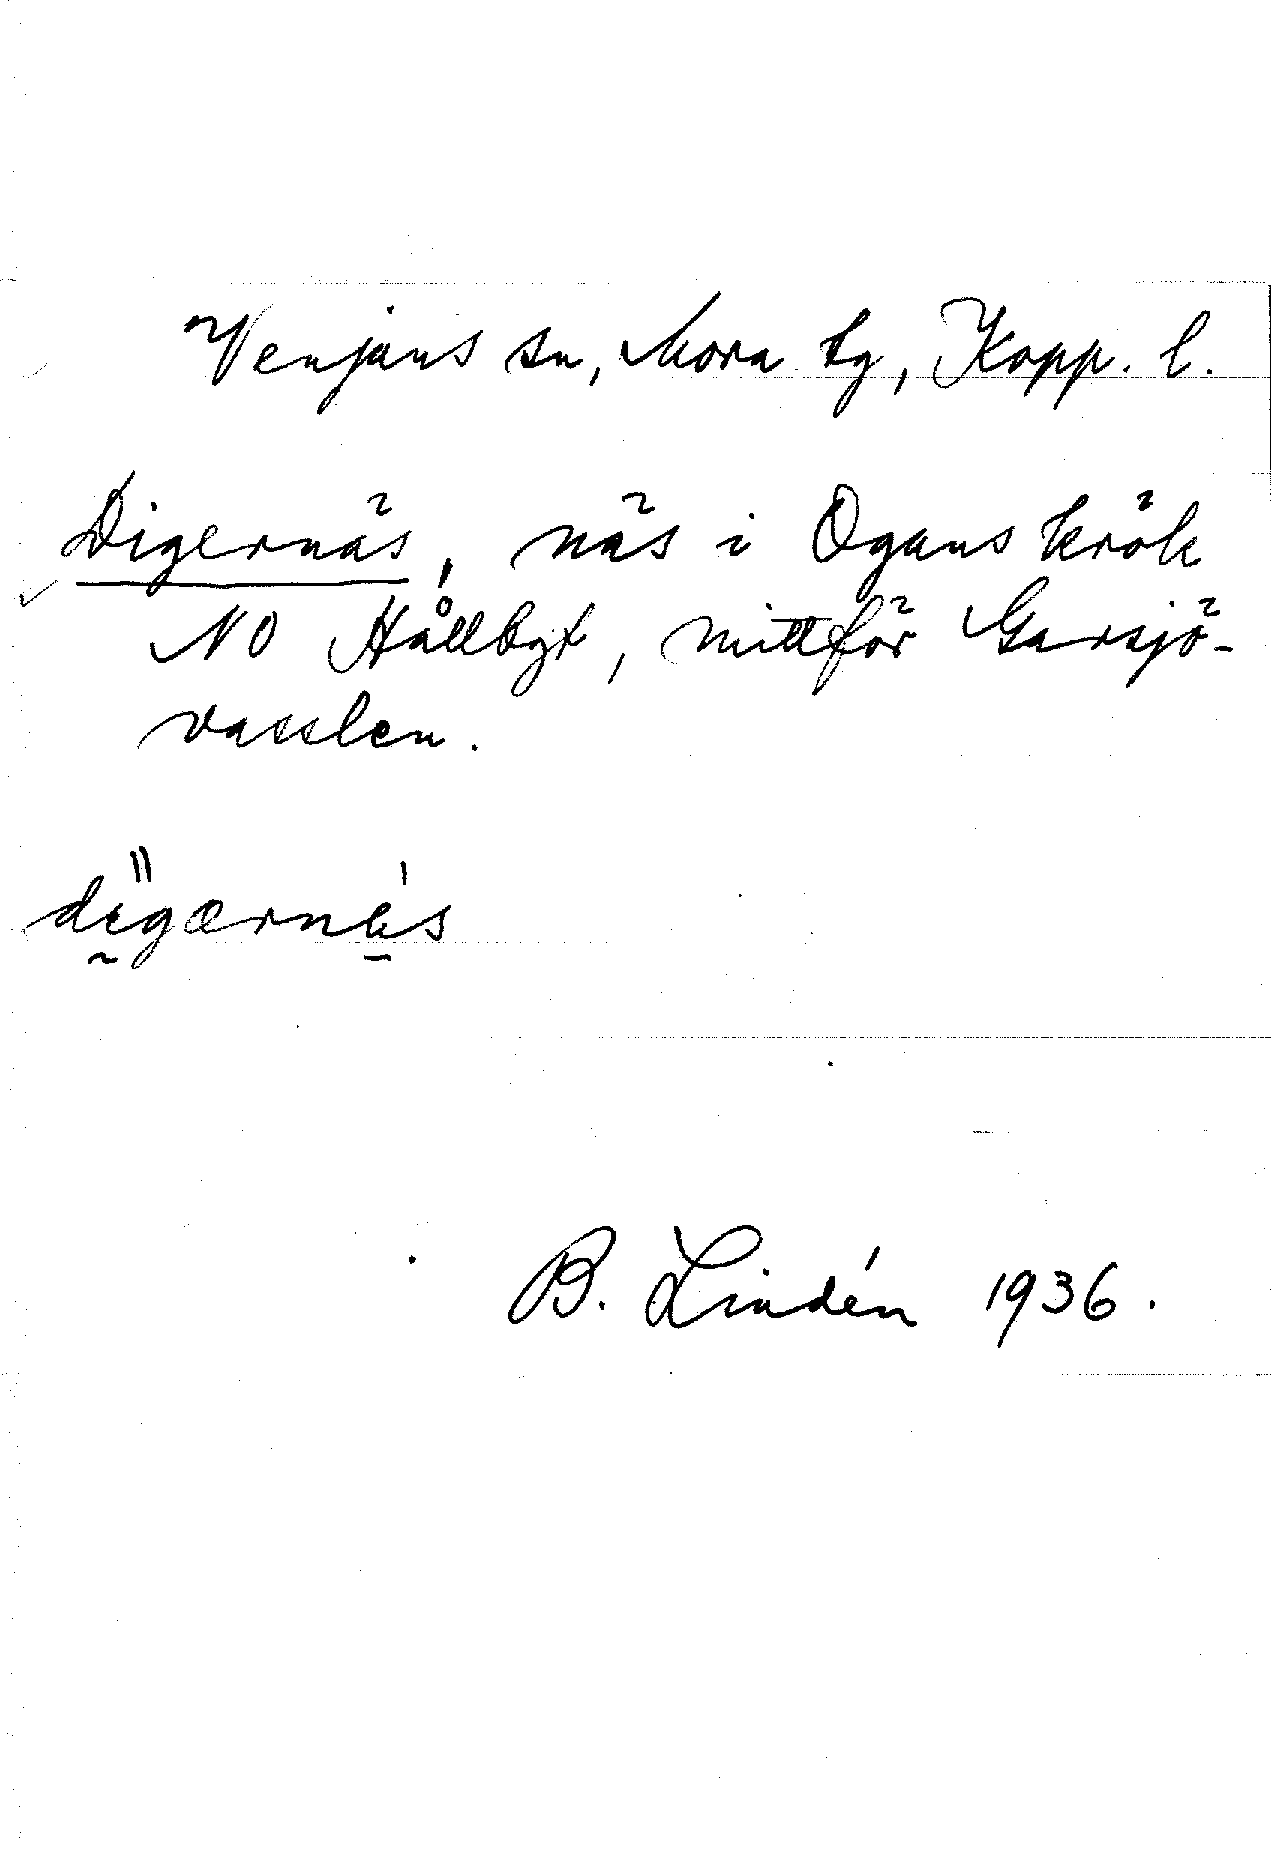 Venjans sn, Mora tg, Kopp. l.
Digernäs, näs i Ogans krök
NO Hållbyt, mittför Garsjö-
vasslen.
dı̋gærnàs
B. Lindén 1936.